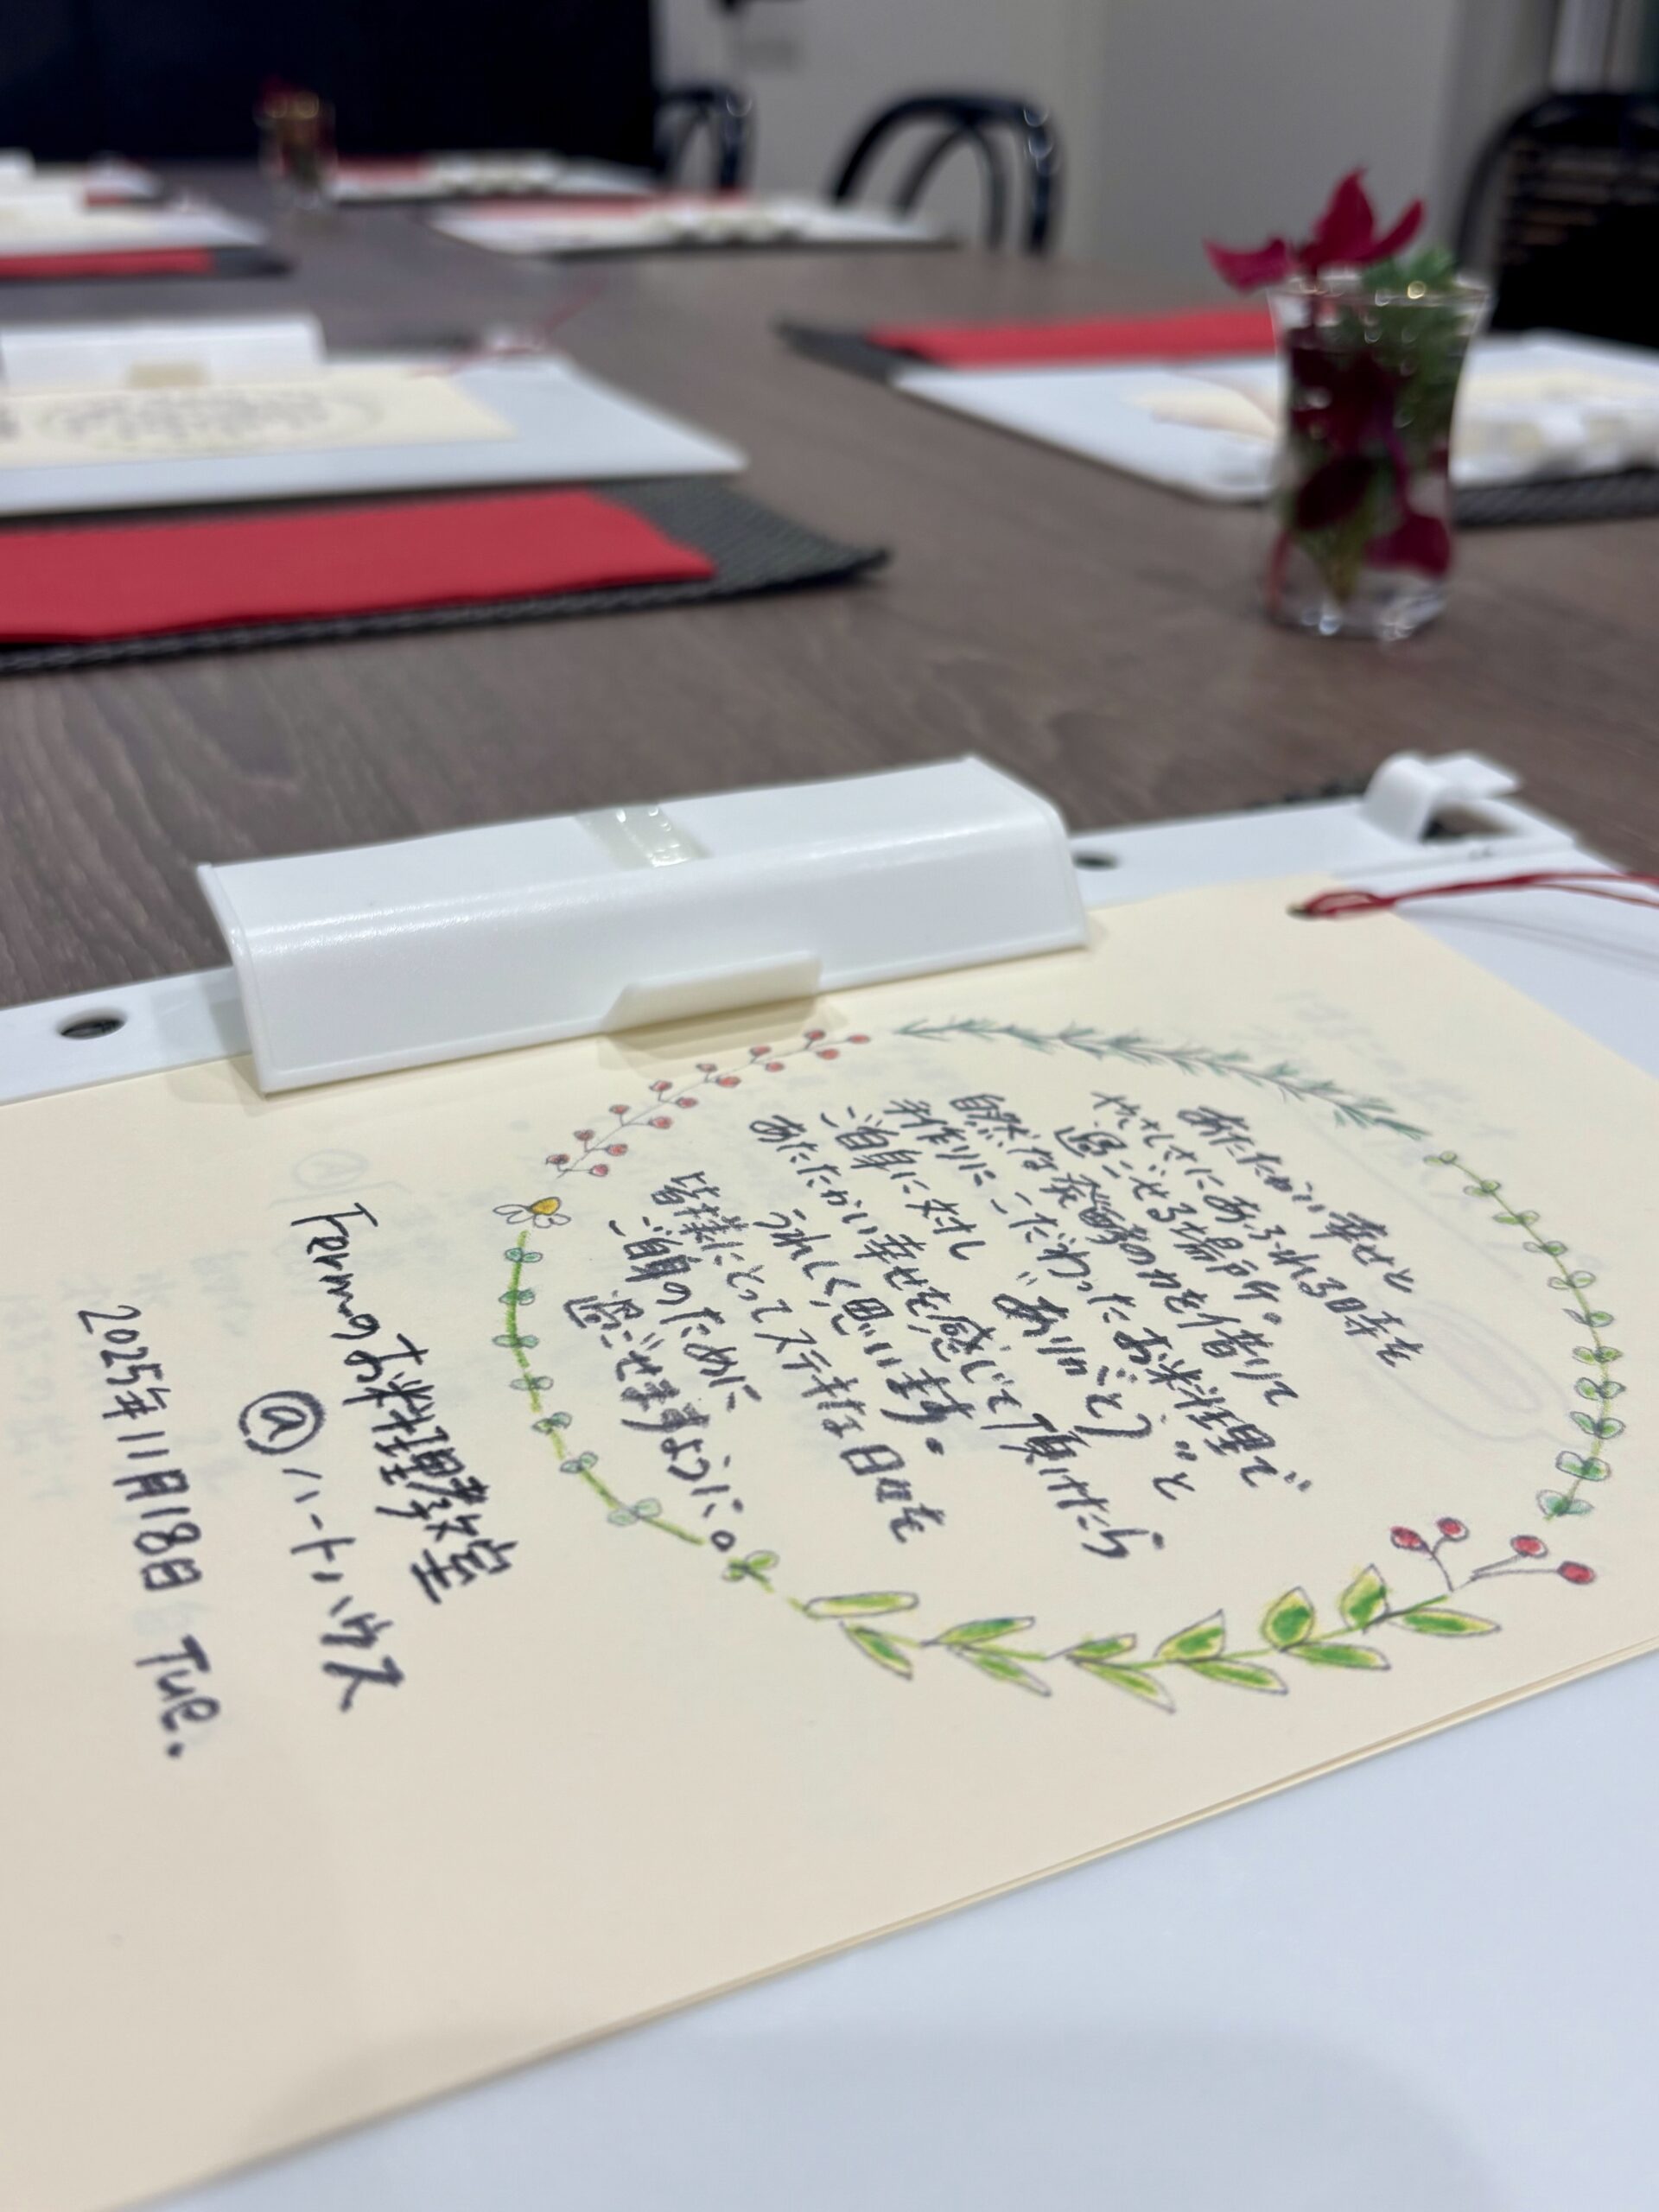 あたたかい幸せと
やさしさにあふれる日季を
過ごせる場所。
自然な発酵の力を借りて
手作りにこだわったお料理で
ご自身に対し "ありがとう" と
あたたかい幸せを感じて頂けたら
うれしく思います。
皆様にとってステキな日曲を
ご自身のために
過ごせますように。
Terumoお料理教室
@ハートハウス
2025年11月18日 Tue.